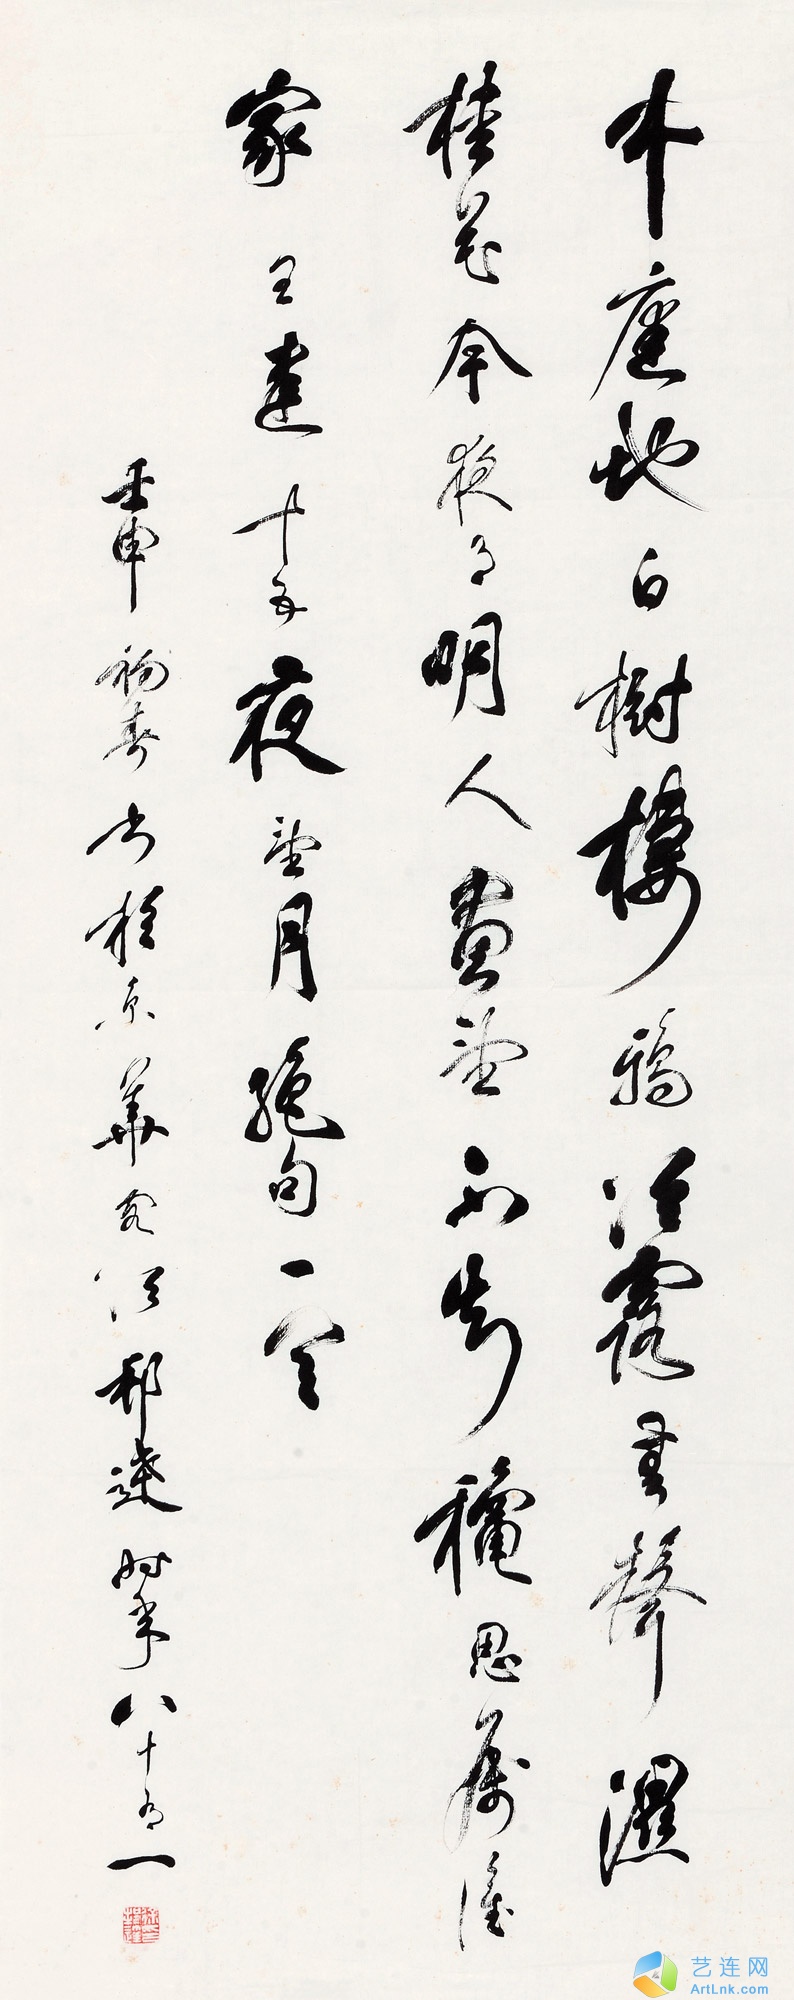 中庭地白樹棲鴉冷露無聲濕
桂花今夜月明人盡望不知穐思屬誰
家 王建十五夜望月絕句一首
壬申初春書於京華徐邦達時年八十有一
艺连网
ArtLnk.com